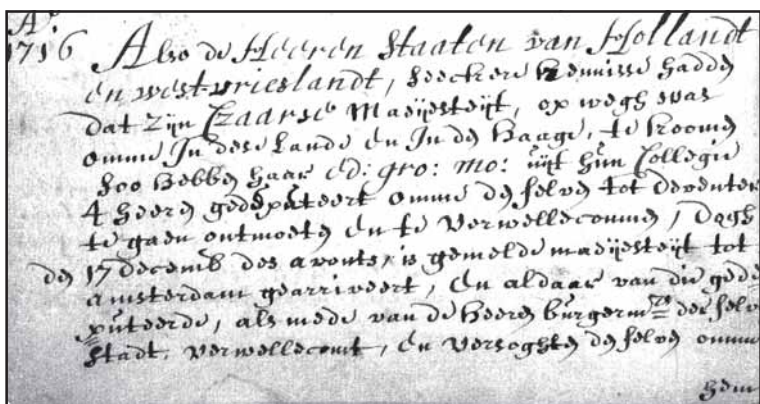 Ao
1716 Also de Heeren Staaten van Hollandt
en westvrieslandt, seeckere kennisse hadden
dat zijn Czaarse Maeijesteijt, op wegh was
omme In dese Lande en In den Haage, te koomen
soo hebben haar ed: gro: mo: uijt hun Collegie
4 heeren gedeputeert omme den selven tot Deventer
te gaen ontmoeten en te verwellecommen, dogh
den 17 decemb des avonts, is gemelde maeijesteijt tot
amsterdam gearriveert, en aldaar van die gede=
puteerde, als mede van de heeren burgermrs der selve
stadt, verwellecomt, en versoghten den selven omme
hem